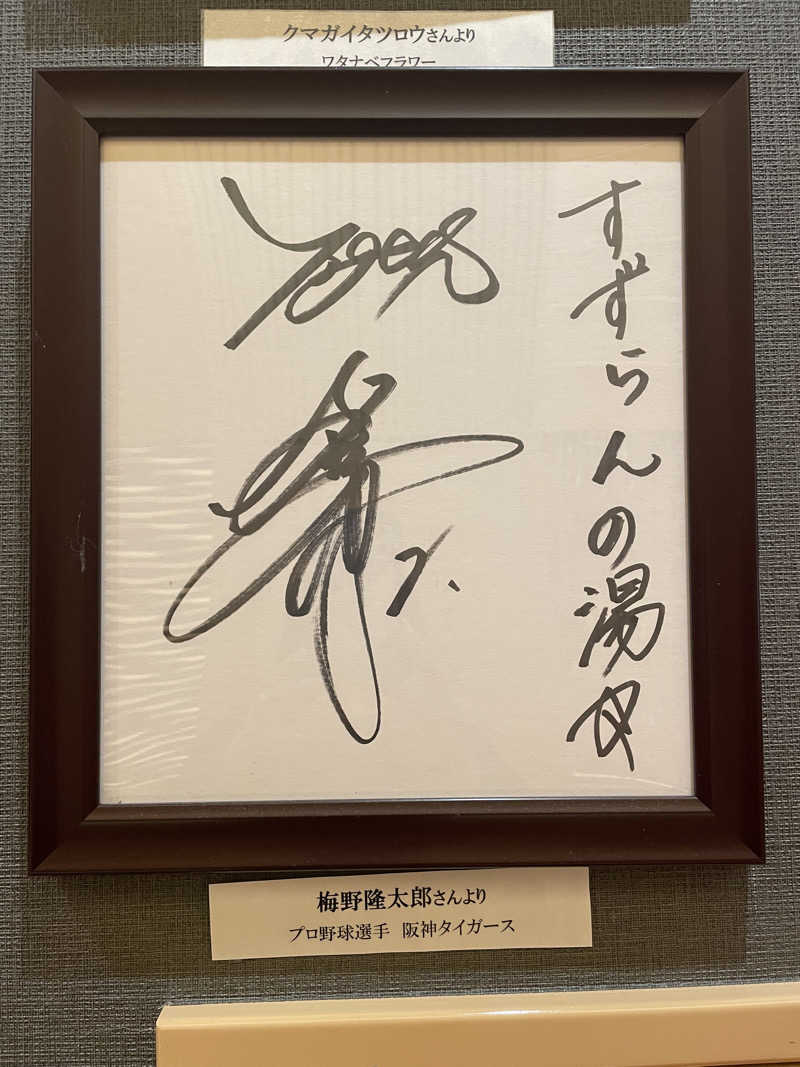 クマガイタツロウさんより
ワタナベフラワー
すずらんの湯
梅野隆太郎さんより
プロ野球選手 阪神タイガース